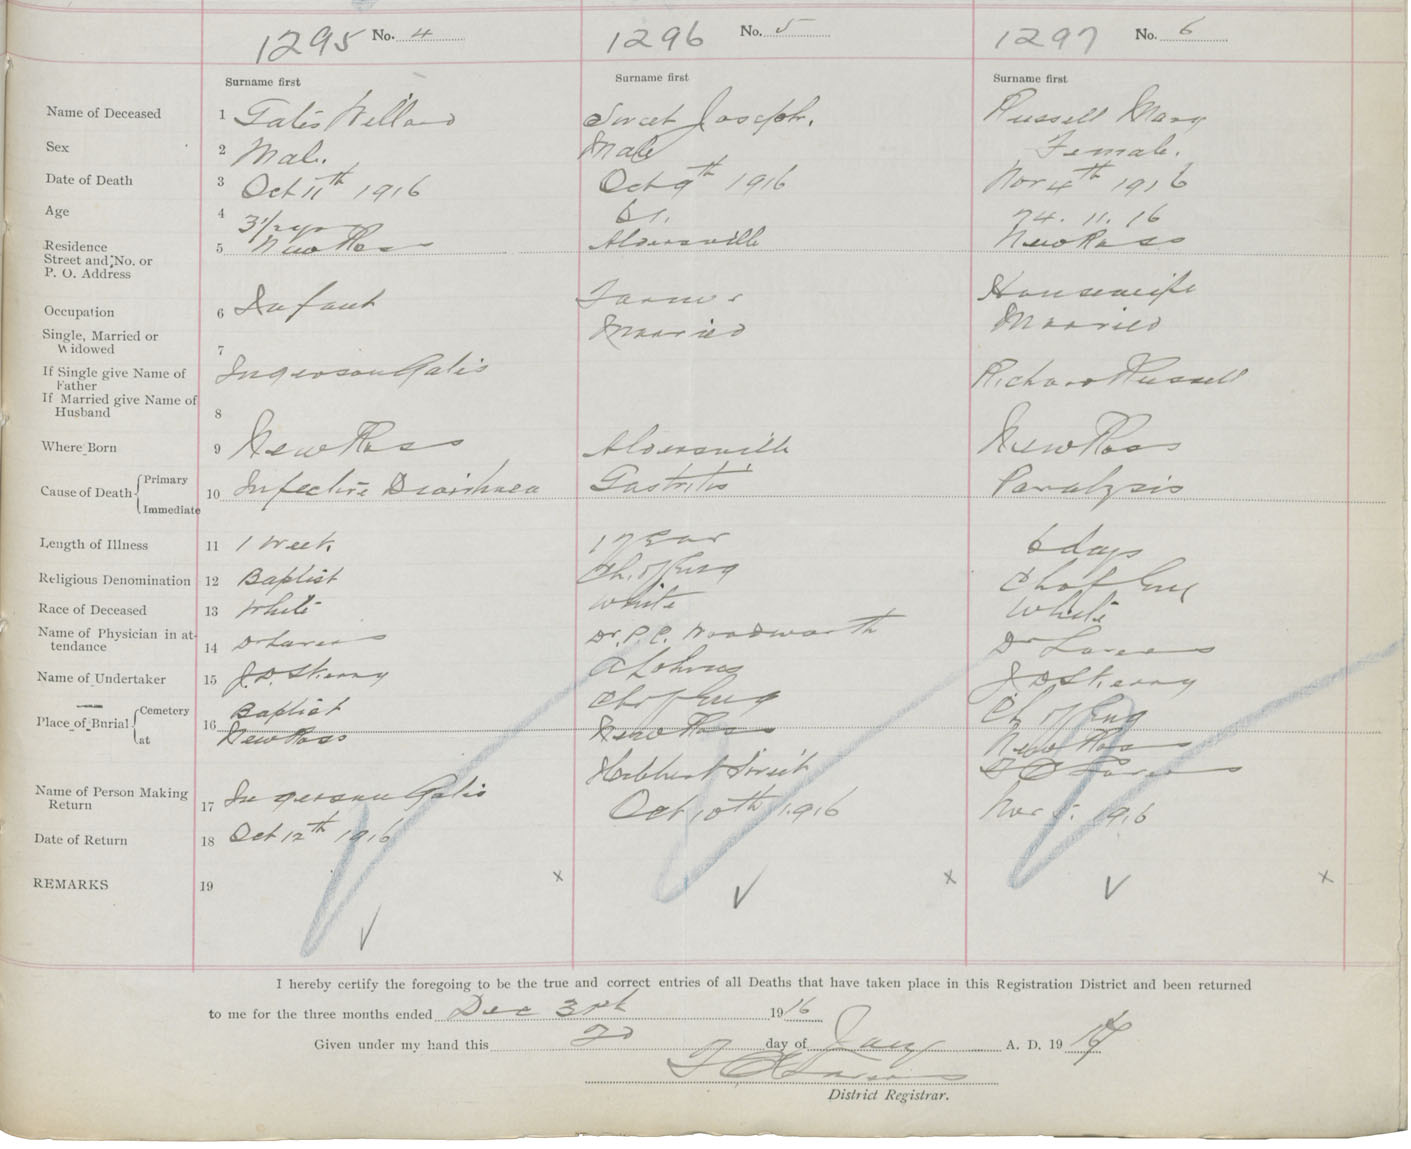 1295 No. 4 1296 No. 5 1297 No. 6
Surname first Surname first Surname first
Name of Deceased 1 Joseph. Russell Mary
Sex 2 Male. Male Female.
Date of Death 3 Oct 11th 1916 Oct 9th 1916 Nov 4th 1916
Age 4 74. 11. 16
Residence
Street and No. or
P. O. Address 5 New Ross Aldersville New Ross
Occupation 6 Infant Farmer Housewife
Single, Married or
Widowed 7 Married Married
If Single give Name of
Father
If Married give Name of
Husband 8 Richard Russell
Where Born 9 New Ross Aldersville New Ross
Cause of Death Primary
Immediate 10 Infective Diarrhaea Gastritis Paralysis
Length of Illness 11 1 Week. 1 year 6 days
Religious Denomination 12 Baptist Ch. of Eng Ch of Eng
Race of Deceased 13 White White White
Name of Physician in at-
tendance 14 Dr Dr. P. C. Woodworth Dr
Name of Undertaker 15 J. D. Skerry J D Skerry
Place of Burial Cemetery 16 Baptist Ch of Eng Ch of Eng
at New Ross New Ross New Ross
Name of Person Making
Return 17
Date of Return 18 Oct 12th 1916 Oct 10th 1916 Nov 5. 1916
REMARKS 19 x x x
I hereby certify the foregoing to be the true and correct entries of all Deaths that have taken place in this Registration District and been returned
to me for the three months ended Dec 1916
Given under my hand this day of Jany A. D. 19 17
District Registrar.